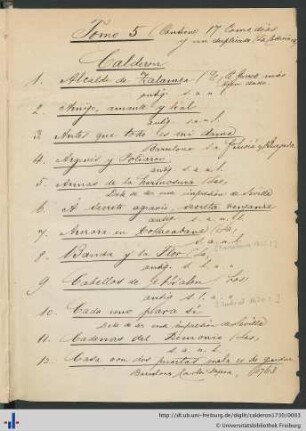 Tomo 5 (Contiene 17 Comedias
y un duplicado
Calderon
1. Alcalde de Zalamea (El,
antig. s. a. l.
2. Amigo, amante y leal
Antig. s. a. l.
3. Antes que todo es mi dama
Barcelona
4. Argenis y Poliarco
antig. s. a. l.
5. Armas de la hermosura (Las,
impresion de Sevilla
6. A secreto agravio, secreta venganza
s. a. l.
7. Aurora en Copacabana (La,
s. a. l.
8. Banda y la Flor (La,
antig. s. l.
9. Cabellos de Absalon Los
antig. s. l. a.
10. Cada uno para si
una impresion de Sevilla
11. Cadenas del Demonio (Las,
s. a. l.
12. Casa con dos puertas mala es de guardar
Barcelona Carlos Sapera, 1763
http://dl.ub.uni-freiburg.de/diglit/calderon1730/0003
© Universitätsbibliothek Freiburg